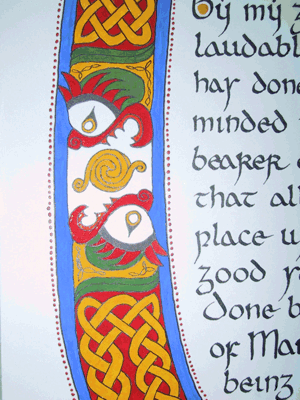 By my
laudabl
has done
minded
bearer
that al
place w
good
Done b
of Mar
being